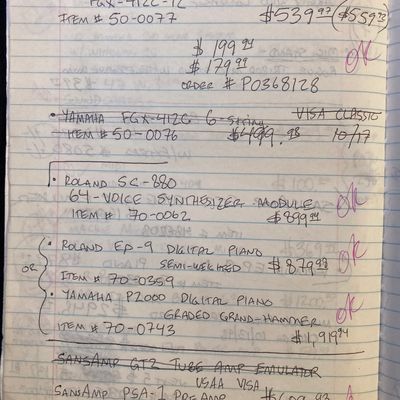 FGX-412C-12
ITEM # 50-0077 $539.97 ($559.93)
$199.94
$179.94 OK
ORDER # P0368128
• YAMAHA FGX-412C 6-String VISA CLASSIC
ITEM # 50-0076 $499.93 10/17
• ROLAND SC-880 OK
64-VOICE SYNTHESIZER MODULE
ITEM # 70-0062 $899.94
• ROLAND EP-9 DIGITAL PIANO OK
OR SEMI-WEIGHTED $879.93
ITEM # 70-0359
• YAMAHA P2000 DIGITAL PIANO OK
GRADED GRAND-HAMMER
ITEM # 70-0743 $1,919.94
SANSAMP GT2 TUBE AMP EMULATOR
USAA VISA
SANSAMP PSA-1 PREAMP